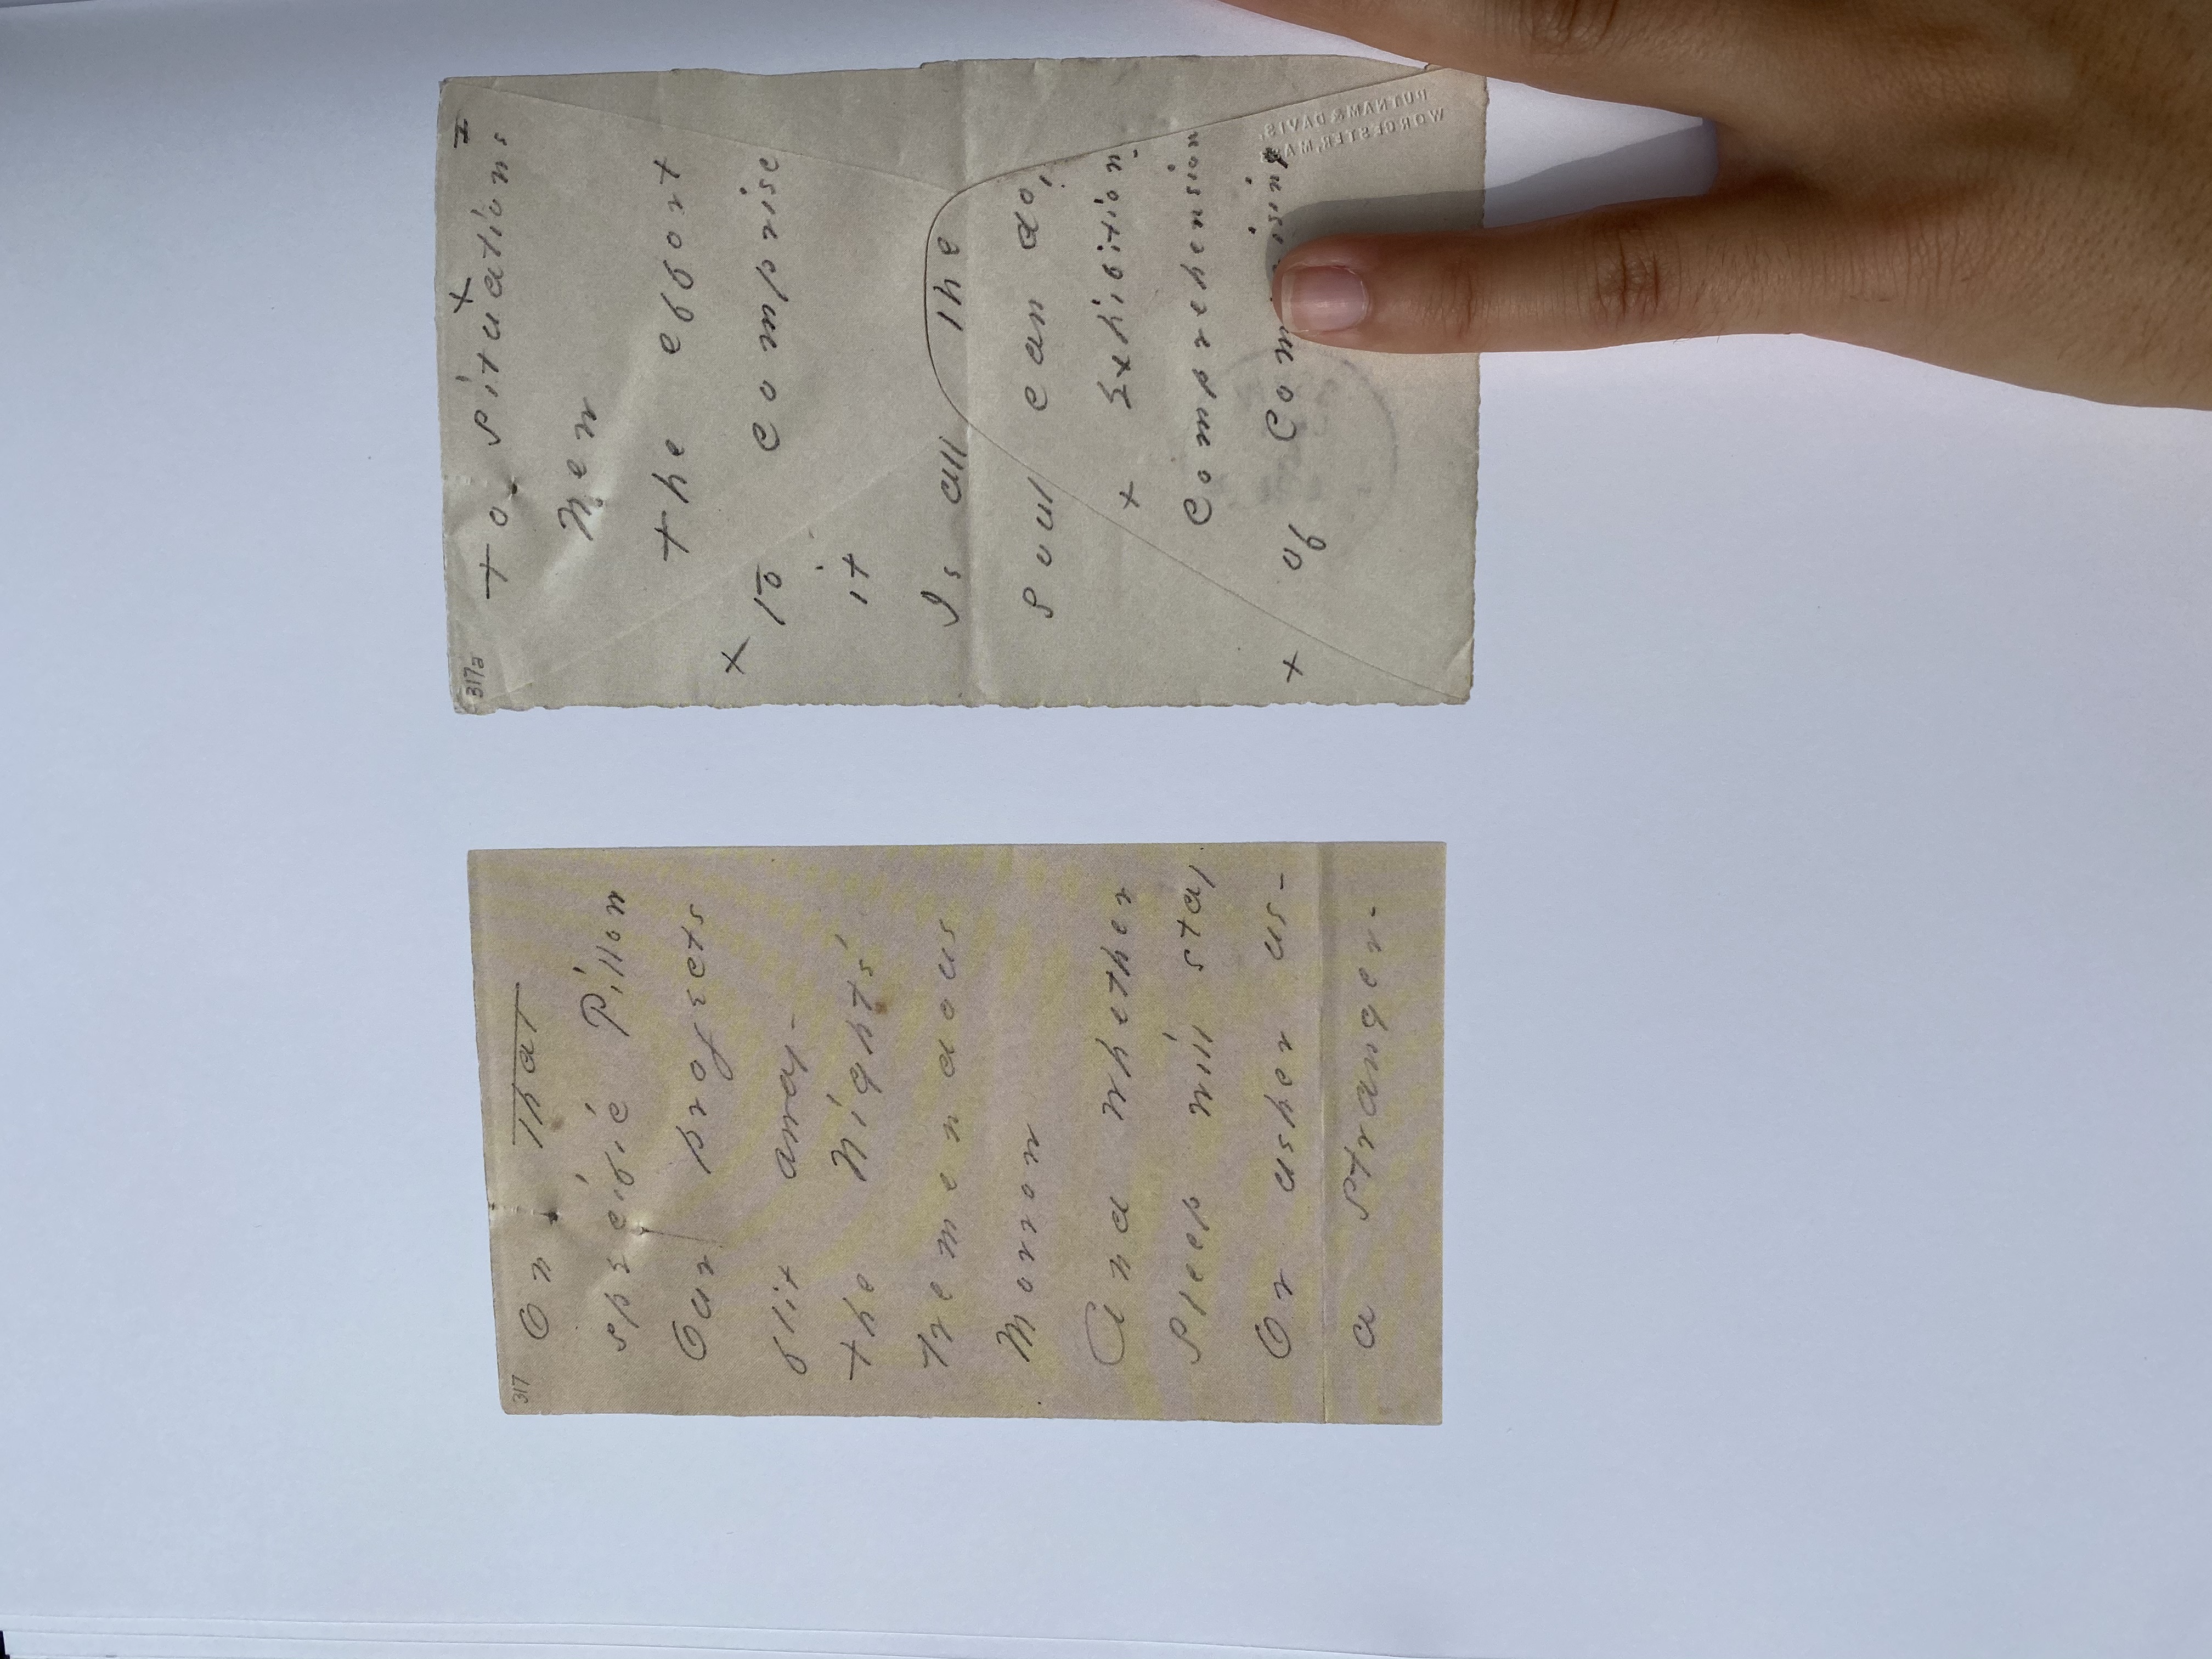 317
On That
specific Pillow
Our projects
flit away -
the Night's
tremendous
Morrow
And whether
sleep will stay
Or usher us -
a stranger -
317a
To situations +
New
the effort
+ to comprise
it
Is all the
soul can do,
+ Exhibition -
Comprehension
+ of
PUTNAM & DAVIS,
WORCESTER, MASS